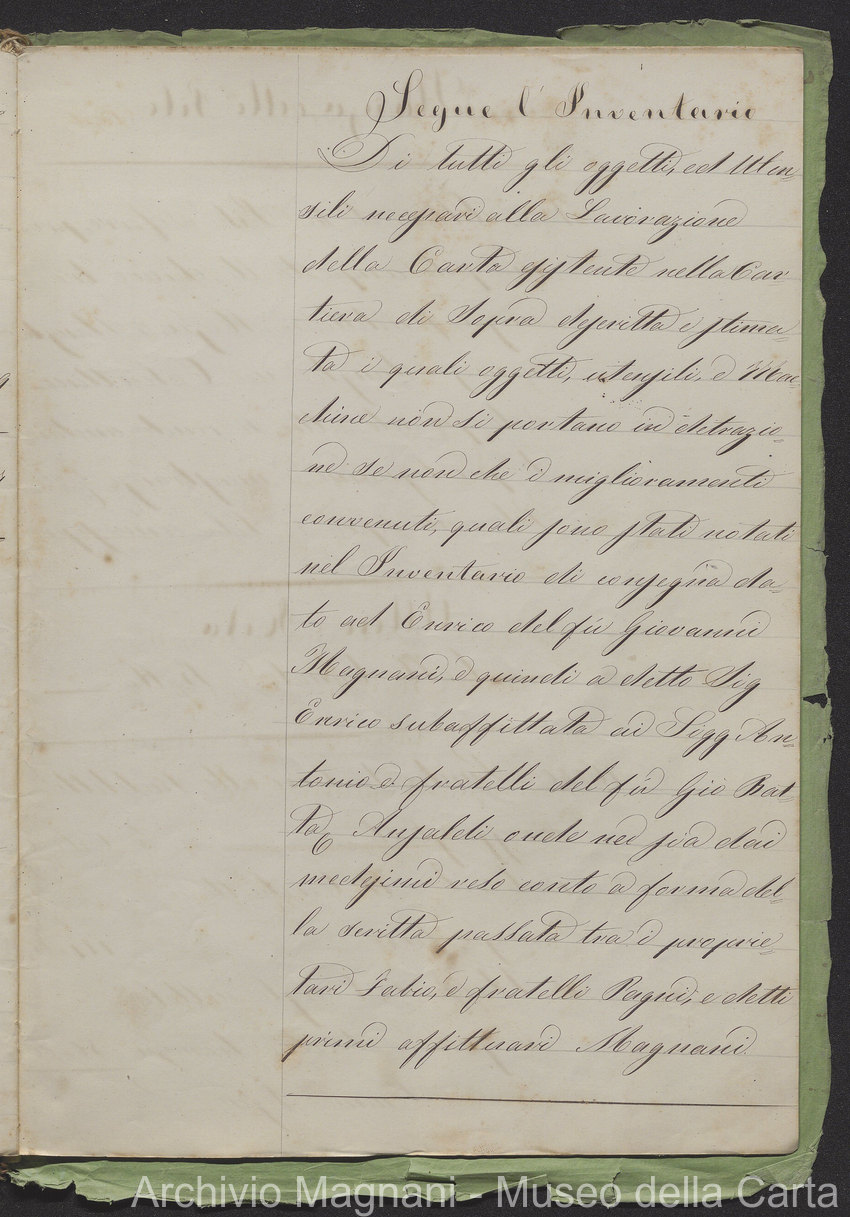 Segue l' Inventario
Di tutti gli oggetti, ed Uten=
sili necessari alla Lavorazione
della Carta esistente nella Car
tiera di Sopra descritta e stima=
ta i quali oggetti, utensili, e Mac
chine non si portano in detrazio=
ne se non che i miglioramenti
convenuti, quali sono stati notati
nel Inventario di consegna da=
to ad Enrico del fú Giovanni
Magnani, e quindi a detto Sig
Enrico subaffittata ai Sigg An=
tonio e fratelli del fú Gio Bat=
ta Ansaldi onde ne sia dai
medesimi reso conto a forma del=
la scritta passata tra i proprie=
tari Fabio, e fratelli Pagni, e detti
primi affittuari Magnani.
Archivio Magnani - Museo della Carta